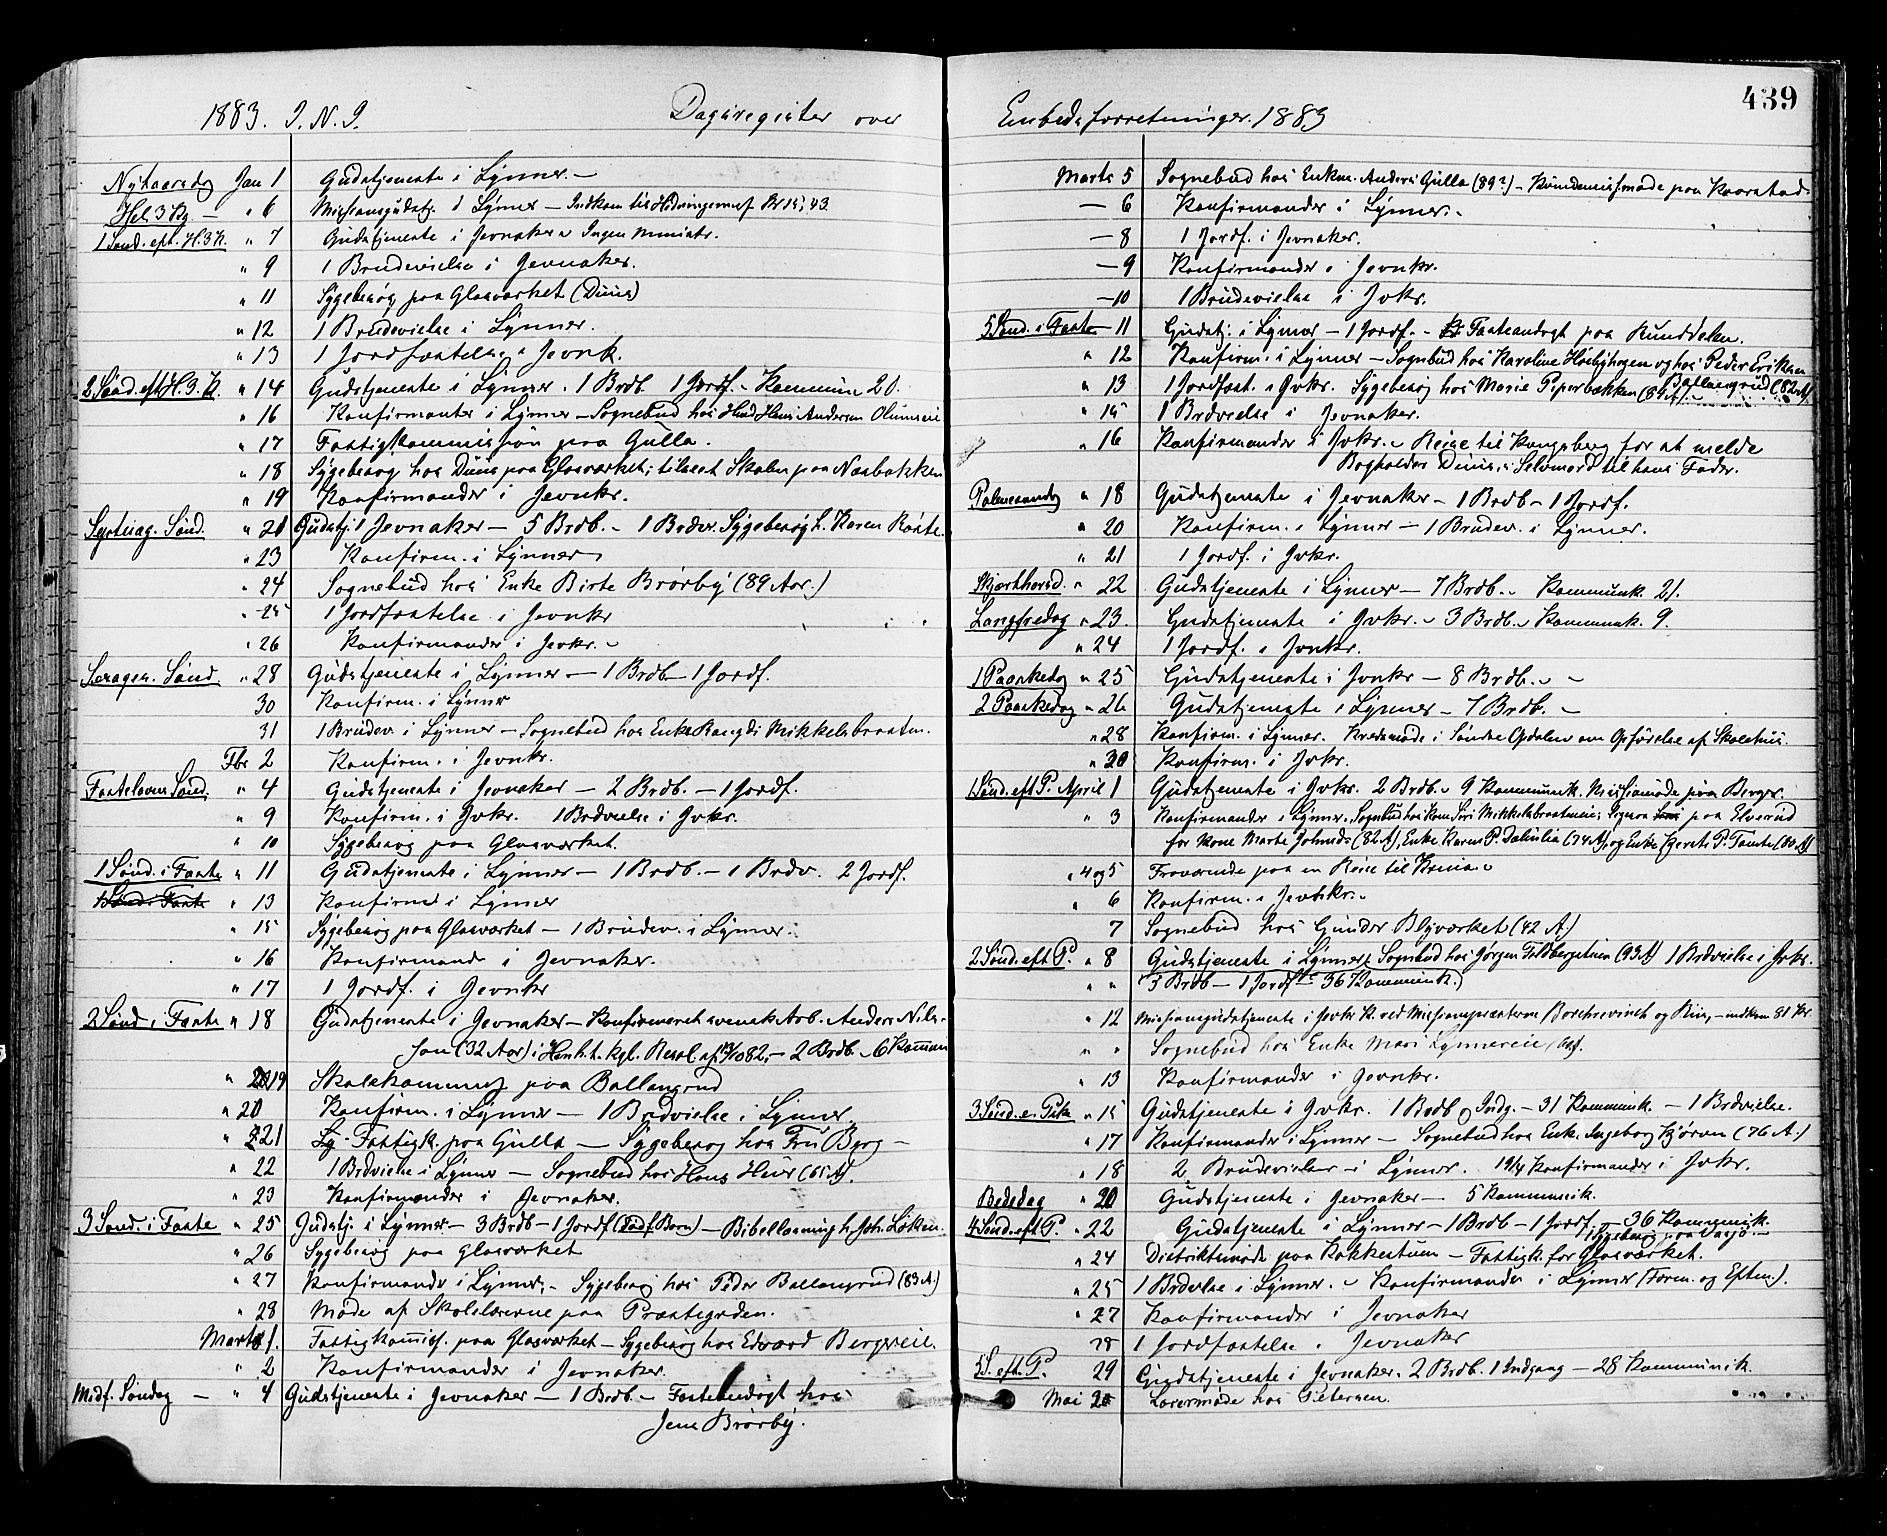 439
1883. I. N. I. Dagsregister over
Nytaarsdag Jan 1 Gudstjeneste i Lynner. –
Hel. 3 Kg. – " 6 Missionsgudstj. i Lynner – Indkom til Hedningemis. Kr 15, 43.
1 Sønd. eft. H.3.K. " 7 Gudstjeneste i Jevnaker Ingen Ministr.
" 9 1 Brudevielse i Jevnaker.
" 11 Sygebesøg paa Glasværket (Duus)
" 12 1 Brudevielse i Lynner.
" 13 1 Jordfæstelse i Jevnk.
2 Sønd. eft. H. 3. K. " 14 Gudstjeneste i Lynner. 1 Brdb 1 Jordf. – Kommun 20.
" 16 Konfirmanter i Lynner – Sognebud hos Hans Andersen Olumseie
" 17 Fattigkommission paa Gulla.
" 18 Sygebesøg hos Duus paa Glasværket; tilseet Skolen paa Næsbakken
" 19 Konfirmander i Jevnkr.
Septuag. Sønd. " 21 Gudstj. i Jevnaker – 5 Brdb. – 1 Brdev. Sygebesøg h. Karen Raste.
" 23 Konfirm. i Lynner
" 24 Sognebud hos Enke Birte Brørby (89 Aar.)
" 25 1 Jordfæstelse i Jevnkr
" 26 Konfirmander i Jevkr. –
Sexages. Sønd. " 28 Gudstjeneste i Lynner – 1 Brdb – 1 Jordf.
30 Konfirm. i Lynner
31 1 Brudev i Lynner – Sognebud hos Enke Rangdi Mikkelsbraaten.
Fbr 2 Konfirm. i Jevnkr.
Fastelavns Sønd. " 4 Gudstjeneste i Jevnaker – 2 Brdb. – 1 Jordf.
" 9 Konfirm. i Jvkr. 1 Brdvielse i Jvkr.
" 10 Sygebesøg paa Glasværket.
1 Sønd. i Faste " 11 Gudstjeneste i Lynner – 1 Brdb. – 1 Brdv. 2 Jordf.
" 13 Konfirmd i Lynner
" 15 Sygebesøg paa Glasværket – 1 Brudev. i Lynner.
" 16 Konfirmand i Jevnaker.
" 17 1 Jordf. i Jevnkr
2 Sønd. i Faste " 18 Gudstjeneste i Jevnaker – Konfirmeret svensk Arb. Anders Nils-
son (32 Aar) i Henh. t. kgl. Resol. af 13/10 82, – 2 Brdb. – 6 Kommun
" 19 Skolekommission paa Ballangrud
" 20 Konfirm. i Lynner – 1 Brdvielse i Lynner
" 21 Fattigk. paa Gulla – Sygebesøg hos Fru Berg –
" 22 1 Brdvielse i Lynner – Sognebud hos Hans Hvir (65 A).
" 23 Konfirmander i Jevnaker.
3 Sønd. i Faste " 25 Gudstj. i Lynner – 3 Brdb – 1 Jordf (Dødf. Barn) – Bibellæsning h. Joh. Løken.
" 26 Sygebesøg paa Glasværket
" 27 Konfirmander i Lynner, – Sygebesøg hos Peder Ballangrud (83 A.)
" 28 Møde af Skolelærerne paa Præstegaden.
Marts 1. Fattigkommis. paa Glasværket – Sygebesøg hos Edvard Bergseie.
" 2 Konfirmander i Jevnaker
Midf. Søndag – " 4 Gudstjeneste i Jevnaker – 1 Brdb – Fasteandagt hos
Jens Brørby.
Embedsforretninger. 1883
Marts 5 Sognebud hos Enkem. Anders Gulla (89?) – Kundemissmøde paa Kaarstad.
– 6 Konfirmander i Lynner. –
– 8 1 Jordf. i Jevnaker.
– 9 Konfirmander i Jevnkr.
– 10 1 Brudevielse i Jvkr.
5 Sønd. i Faste – 11 Gudstj. i Lynner – 1 Jordf. – Fasteandagt paa Runddelen.
" 12 Konfirm. i Lynner – Sognebud hos Karoline Høibyhagen og hos Peder Eriksen
Ballangrud (82 A).
" 13 1 Jordfæst. i Jvkr. Sygebesøg hos Marie Piperbakken (59 A). –
" 15 1 Brdvielse i Jevnaker.
" 16 Konfirmander i Jvkr. – Reise til Kongsberg for at melde
Bogholder Duus's Selvmord til hans Fader.
Palmesøndag " 18 Gudstjeneste i Jevnaker – 1 Brdb – 1 Jordf.
" 20 Konfirm. i Lynner – 1 Brudev. i Lynner.
" 21 1 Jordf. i Jvkr.
Skjærthorsd. " 22 Gudstjeneste i Lynner – 7 Brdb. – Kommunk. 21.
Langfredag " 23. Gudstjeneste i Jvkr. – 3 Brdb. – Kommunk. 9.
" 24 1 Jordf. i Jvnkr.
1 Paaskedag " 25 Gudstjeneste i Jvnkr – 8 Brdb. – –
2 Paaskedag " 26 Gudstjeneste i Lynner – 7 Brdb. –
" 28 Konfirm. i Lynner. Kredsmøde i Søndre Opdalen om Opførelse af Skolehus.
" 30 Konfirm. i Jvkr.
1 Sønd. eft P. April 1 Gudstjeneste i Jvkr. 2 Brdb. – 9 Kommunk. Missionsmøde paa Berger.
" 3 Konfirmander i Lynner. Sognebud hos Siri Mikkelsbraateneie; paa Elverud
for Kone Marte Johnsd (82 A), Enke Karen P. Dalinlia (74 A), og Enke Kjersti P. Tomte (80 A)
" 4 og 5 Fraværende paa en Reise til Kristia. –
" 6 Konfirm. i Jevnkr. –
7 Sognebud hos Gunder Blyværket (42 A)
2 Sønd. eft P. " 8 Gudstjeneste i Lynner, Sognebud hos Jørgen Foldbergstuen (93 A) 1 Brdvielse i Jvkr.
" " 3 Brdb – 1 Jordf – 36 Kommunk.
" 12 Missionsgudstjeneste i Jevkr K. ved Missionspræsterne Borchrevinck og Riis, – indkom 81 Kr
" " Sognebud hos Enke Mari Lynnereie
" 13 Konfirmander i Jevnkr.
3 Sønd. e. Psk " 15 Gudstjeneste i Jvkr. 1 Brdb Indg. – 31 Kommunk. – 1 Brdvielse.
" 17 Konfirmander i Lynner – Sognebud hos Enk. Ingeborg Kjørven (76 A.)
" 18 2 Brudevielser i Lynner. 19/4 Konfirmander i Jvkr.
Bededag " 20 Gudstjeneste i Jevnaker – 5 Kommunik.
4 Sønd. eft P. " 22 Gudstjeneste i Lynner – 1 Brdb – 1 Jordf. – 36 Kommunik.
" 24 Distriktsmøde paa Kokkerstuen – Fattigk. for Glasværket.
" 25 1 Brdvielse i Lynner. – Konfirmander i Lynner (Form. og Efterm.).
" 27 Konfirmander i Jevnaker
28 1 Jordfæstelse i Jevnaker
5 S. eft. P. 29 Gudstjeneste i Jevnaker. 2 Brdb. 1 Indgang – 28 Kommunik.
Mai Lærermøde hos Petersen.